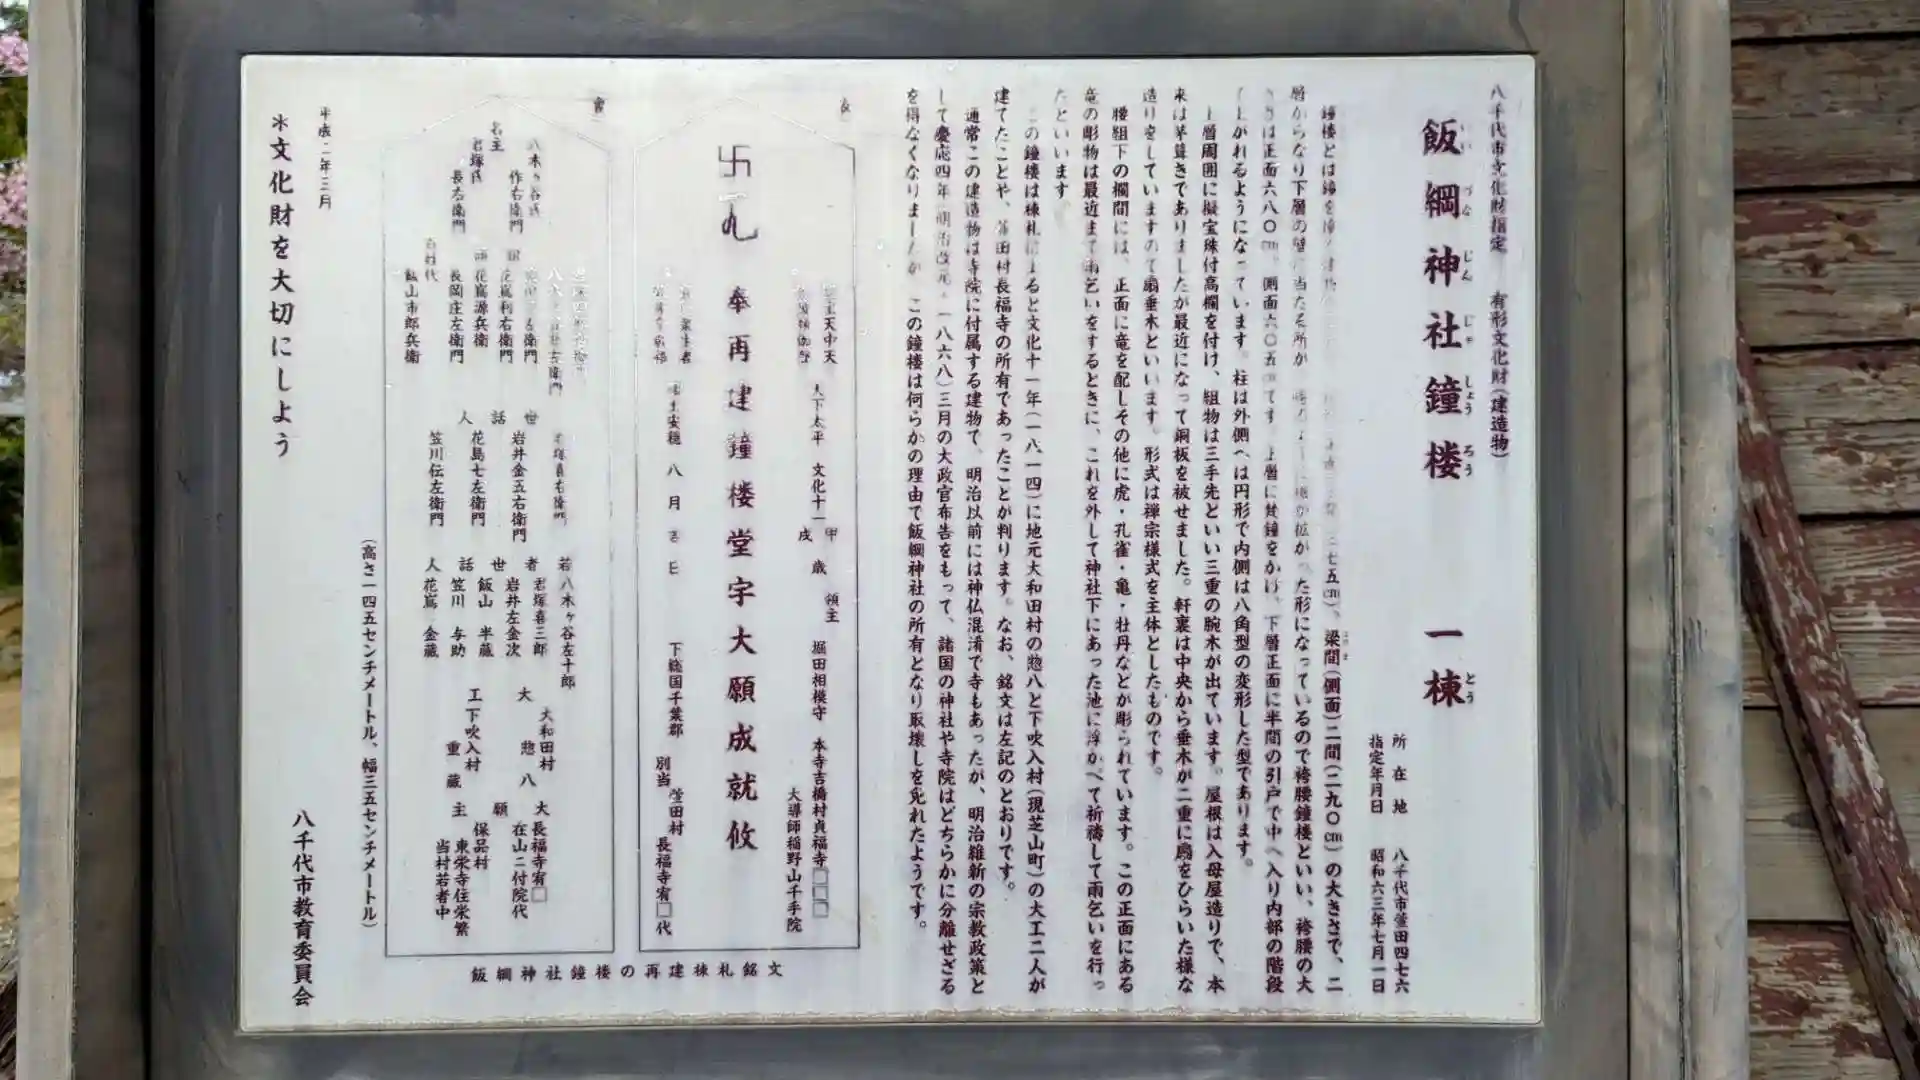 八千代市文化財指定　有形文化財(建造物)
飯綱神社鐘楼　一棟
いいづなじんじゃしょうろう　とう
所在地　八千代市萱田四七六
指定年月日　昭和六三年七月一日
鐘楼とは鐘を　七五㎝)、梁間(側面)二間(二九〇㎝)の大きさで、二
層からなり下層の壁に当たる所が　拡がった形になっているので袴腰鐘楼といい、袴腰の大
きさは正面六八〇㎝、側面六〇五㎝です。上層に梵鐘をかけ、下層正面に半間の引戸で中へ入り内部の階段
で上がれるようになっています。柱は外側へは円形で内側は八角型の変形した型であります。
上層周囲に擬宝珠付高欄を付け、組物は三手先といい三重の腕木が出ています。屋根は入母屋造りで、本
来は茅葺きでありましたが最近になって銅板を被せました。軒裏は中央から垂木が二重に扇をひらいた様な
造りをしていますので扇垂木といいます。形式は禅宗様式を主体としたものです。
腰組下の欄間には、正面に竜を配しその他に虎・孔雀・亀・牡丹などが彫られています。この正面にある
竜の彫物は最近まで雨乞いをするときに、これを外して神社下にあった池に浮かべて祈祷して雨乞いを行っ
たといいます。
この鐘楼は棟札によると文化十一年(一八一四)に地元大和田村の惣八と下吹入村(現芝山町)の大工二人が
建てたことや、萱田村長福寺の所有であったことが判ります。なお、銘文は左記のとおりです。
通常この建造物は寺院に付属する建物で、明治以前には神仏混淆で寺もあったが、明治維新の宗教政策と
して慶応四年(明治改元・一八六八)三月の大政官布告をもって、諸国の神社や寺院はどちらかに分離せざる
を得なくなりましたが、この鐘楼は何らかの理由で飯綱神社の所有となり取壊しを免れたようです。
表
天中天　天下太平　文化十一甲戌歳　領主　堀田相模守　本寺吉橋村貞福寺□□□
大導師稲野山千手院
卍　奉再建鐘楼堂宇大願成就攸
国土安穏　八月吉日　下総国千葉郡　別当　萱田村　長福寺宥□代
裏
八木ヶ谷氏　作右衛門
名主　君塚氏　長右衛門
花嶌利右衛門
花嶌源兵衛
長岡庄左衛門
百姓代　飯山市郎兵衛
世話人
君塚喜右衛門
岩井金五右衛門
花島七左衛門
笠川伝左衛門
若者世話人
八木ヶ谷左十郎
君塚喜三郎
岩井左金次
飯山　半蔵
笠川　与助
花嶌　金蔵
大工
大和田村　惣八
下吹入村　重蔵
大願主
長福寺宥□
在山ニ付院代
保品村
東栄寺住栄繁
当村若者中
飯綱神社鐘楼の再建棟札銘文
(高さ一四五センチメートル、幅三五センチメートル)
平成二年三月
＊文化財を大切にしよう
八千代市教育委員会